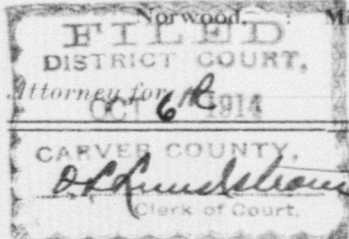 Norwood,
FILED
DISTRICT COURT,
Attorney for
OCT 6th 1914
CARVER COUNTY,
Clerk of Court.